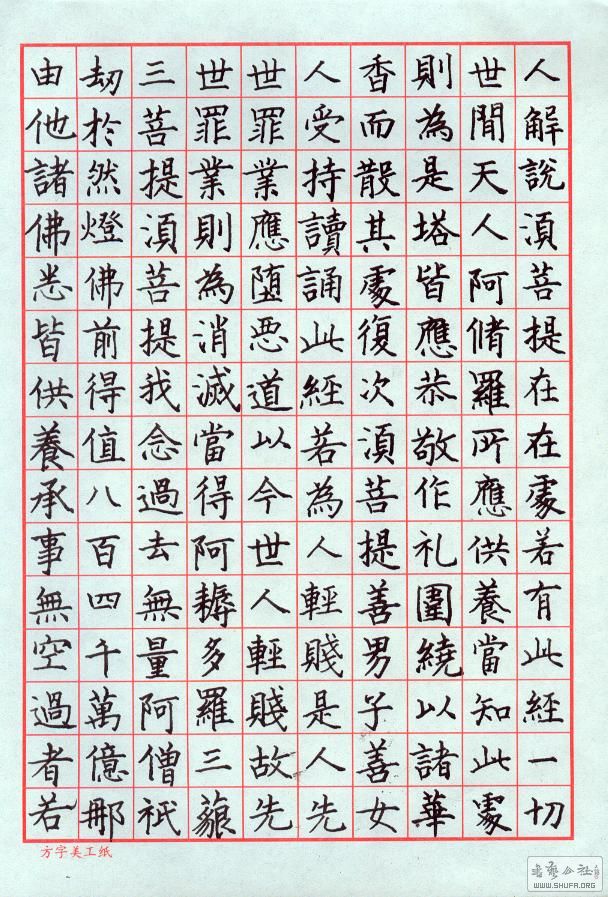 人解說湏菩提在在處若有此經一切
世間天人阿脩羅所應供養當知此處
則為是塔皆應恭敬作礼圍繞以諸華
香而散其處復次湏菩提善男子善女
人受持讀誦此經若為人輕賤是人先
世罪業應堕恶道以今世人輕賤故先
世罪業則為消滅當得阿耨多羅三藐
三菩提湏菩提我念過去無量阿僧祇
劫於然燈佛前得值八百四千萬億那
由他諸佛悉皆供養承事無空過者若
方字美工纸
WWW.SHUFA.ORG